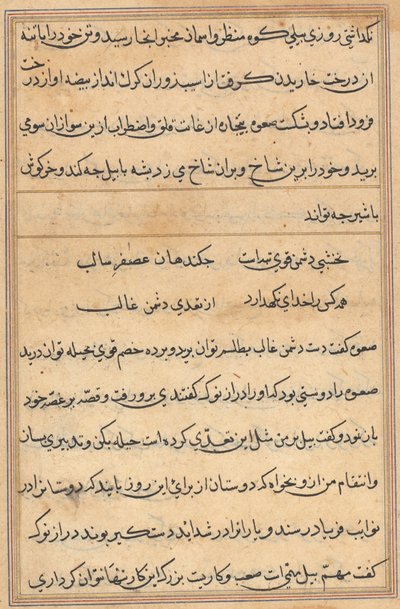 نکداشتی روزی پیلی کوه منظر و اسمان مخبر انجا رسید و تن خود را با تنه
از درخت خاریدن کرفت از اسیب زور ان کرک انداز بیضه او از درخت
فرود افتاد و بشکست صعوه بیچاره از غایت قلق و اضطراب ازین سو ازان سو می
برید و خود را برین شاخ و بران شاخ می زد پشه با پیل چه کند و خرکوش
با شیر چه تواند
نخشبی دشمن قوی تهدات جکند هان عصفر سالب
همه کس را خدای نکهدارد از تعدی دشمن غالب
صعوه کفت دست دشمن غالب بطلسم توان برید و پرده خصم قوی بحیله توان درید
صعوه را دوستی بود که او را دراز نوک کفتندی بر و رفت و قصه پر غصه خود
باز نمود و کفت پیل بر من مثل این تعدی کرده است حیله بکن و تدبیری بساز
و انتقام من از و بخواه که دوستان از برای این روز بایند که دوستانرا در
نوایب فریاد رسند و یارانرا در شداید دستکیر بوند دراز نوک
کفت مهم پیل مهمی است صعب و کاریست بزرک این کار تنها نتوان کرد اری